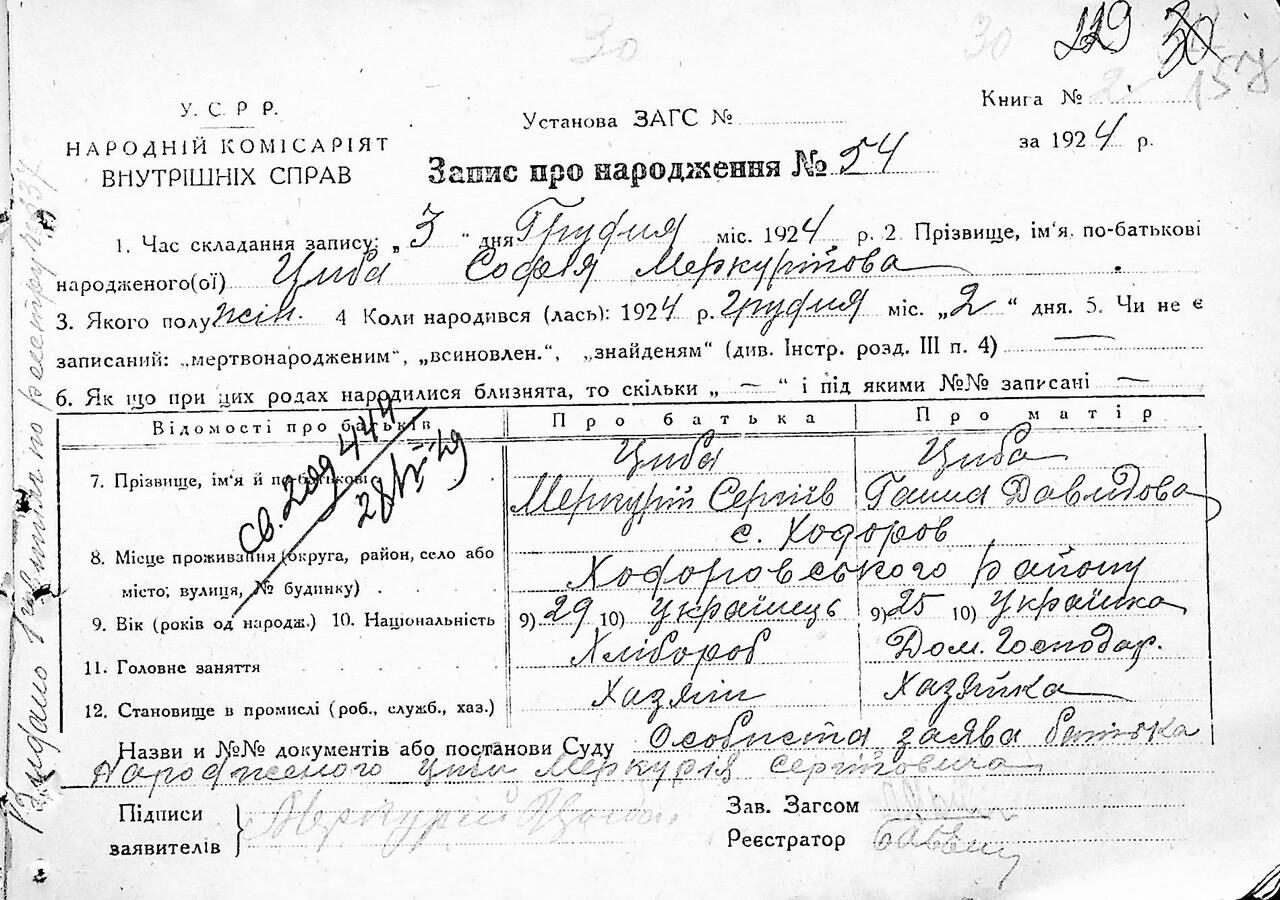 30 30 119 30
2 157
У. С. Р Р.
НАРОДНІЙ КОМІСАРІЯТ
ВНУТРІШНІХ СПРАВ
Установа ЗАГС №
Книга №
за 1924 р.
Запис про народження № 54
1. Час складання запису: „ 3 “ дня Грудня міс. 1924 р. 2. Прізвище, ім'я, по-батькові
народженого(ої) Циба Софія Меркурійова
3. Якого полу жін. 4 Коли народився (лась): 1924 р. грудня міс. „ 2 “ дня. 5. Чи не є
записаний: „мертвонародженим“, „всиновлен.“, „знайденям“ (див. Інстр. розд. III п. 4) —
6. Як що при цих родах народилися близнята, то скільки „ — “ і під якими №№ записані —
Відомості про батьків Про батька Про матір
св. 209 444
7. Прізвище, ім'я й по-батькові Циба Циба
Меркурій Сергіїв Ганна Давидова
8. Місце проживання (округа, район, село або с. Ходоров
місто, вулиця, № будинку) Ходоровського району
9. Вік (років од народж.) 10. Національність 9) 29 10) Українець 9) 25 10) Українка
11. Головне заняття Хлібороб Дом. Господар.
12. Становище в промислі (роб., служб., хаз.) Хазяїн Хазяйка
Назви и №№ документів або постанови Суду Особиста заява батька
Народженого Циби Меркурія Сергійовича
Підписи
заявителів
Меркурій Циба.
Зав. Загсом
Реєстратор
Видано